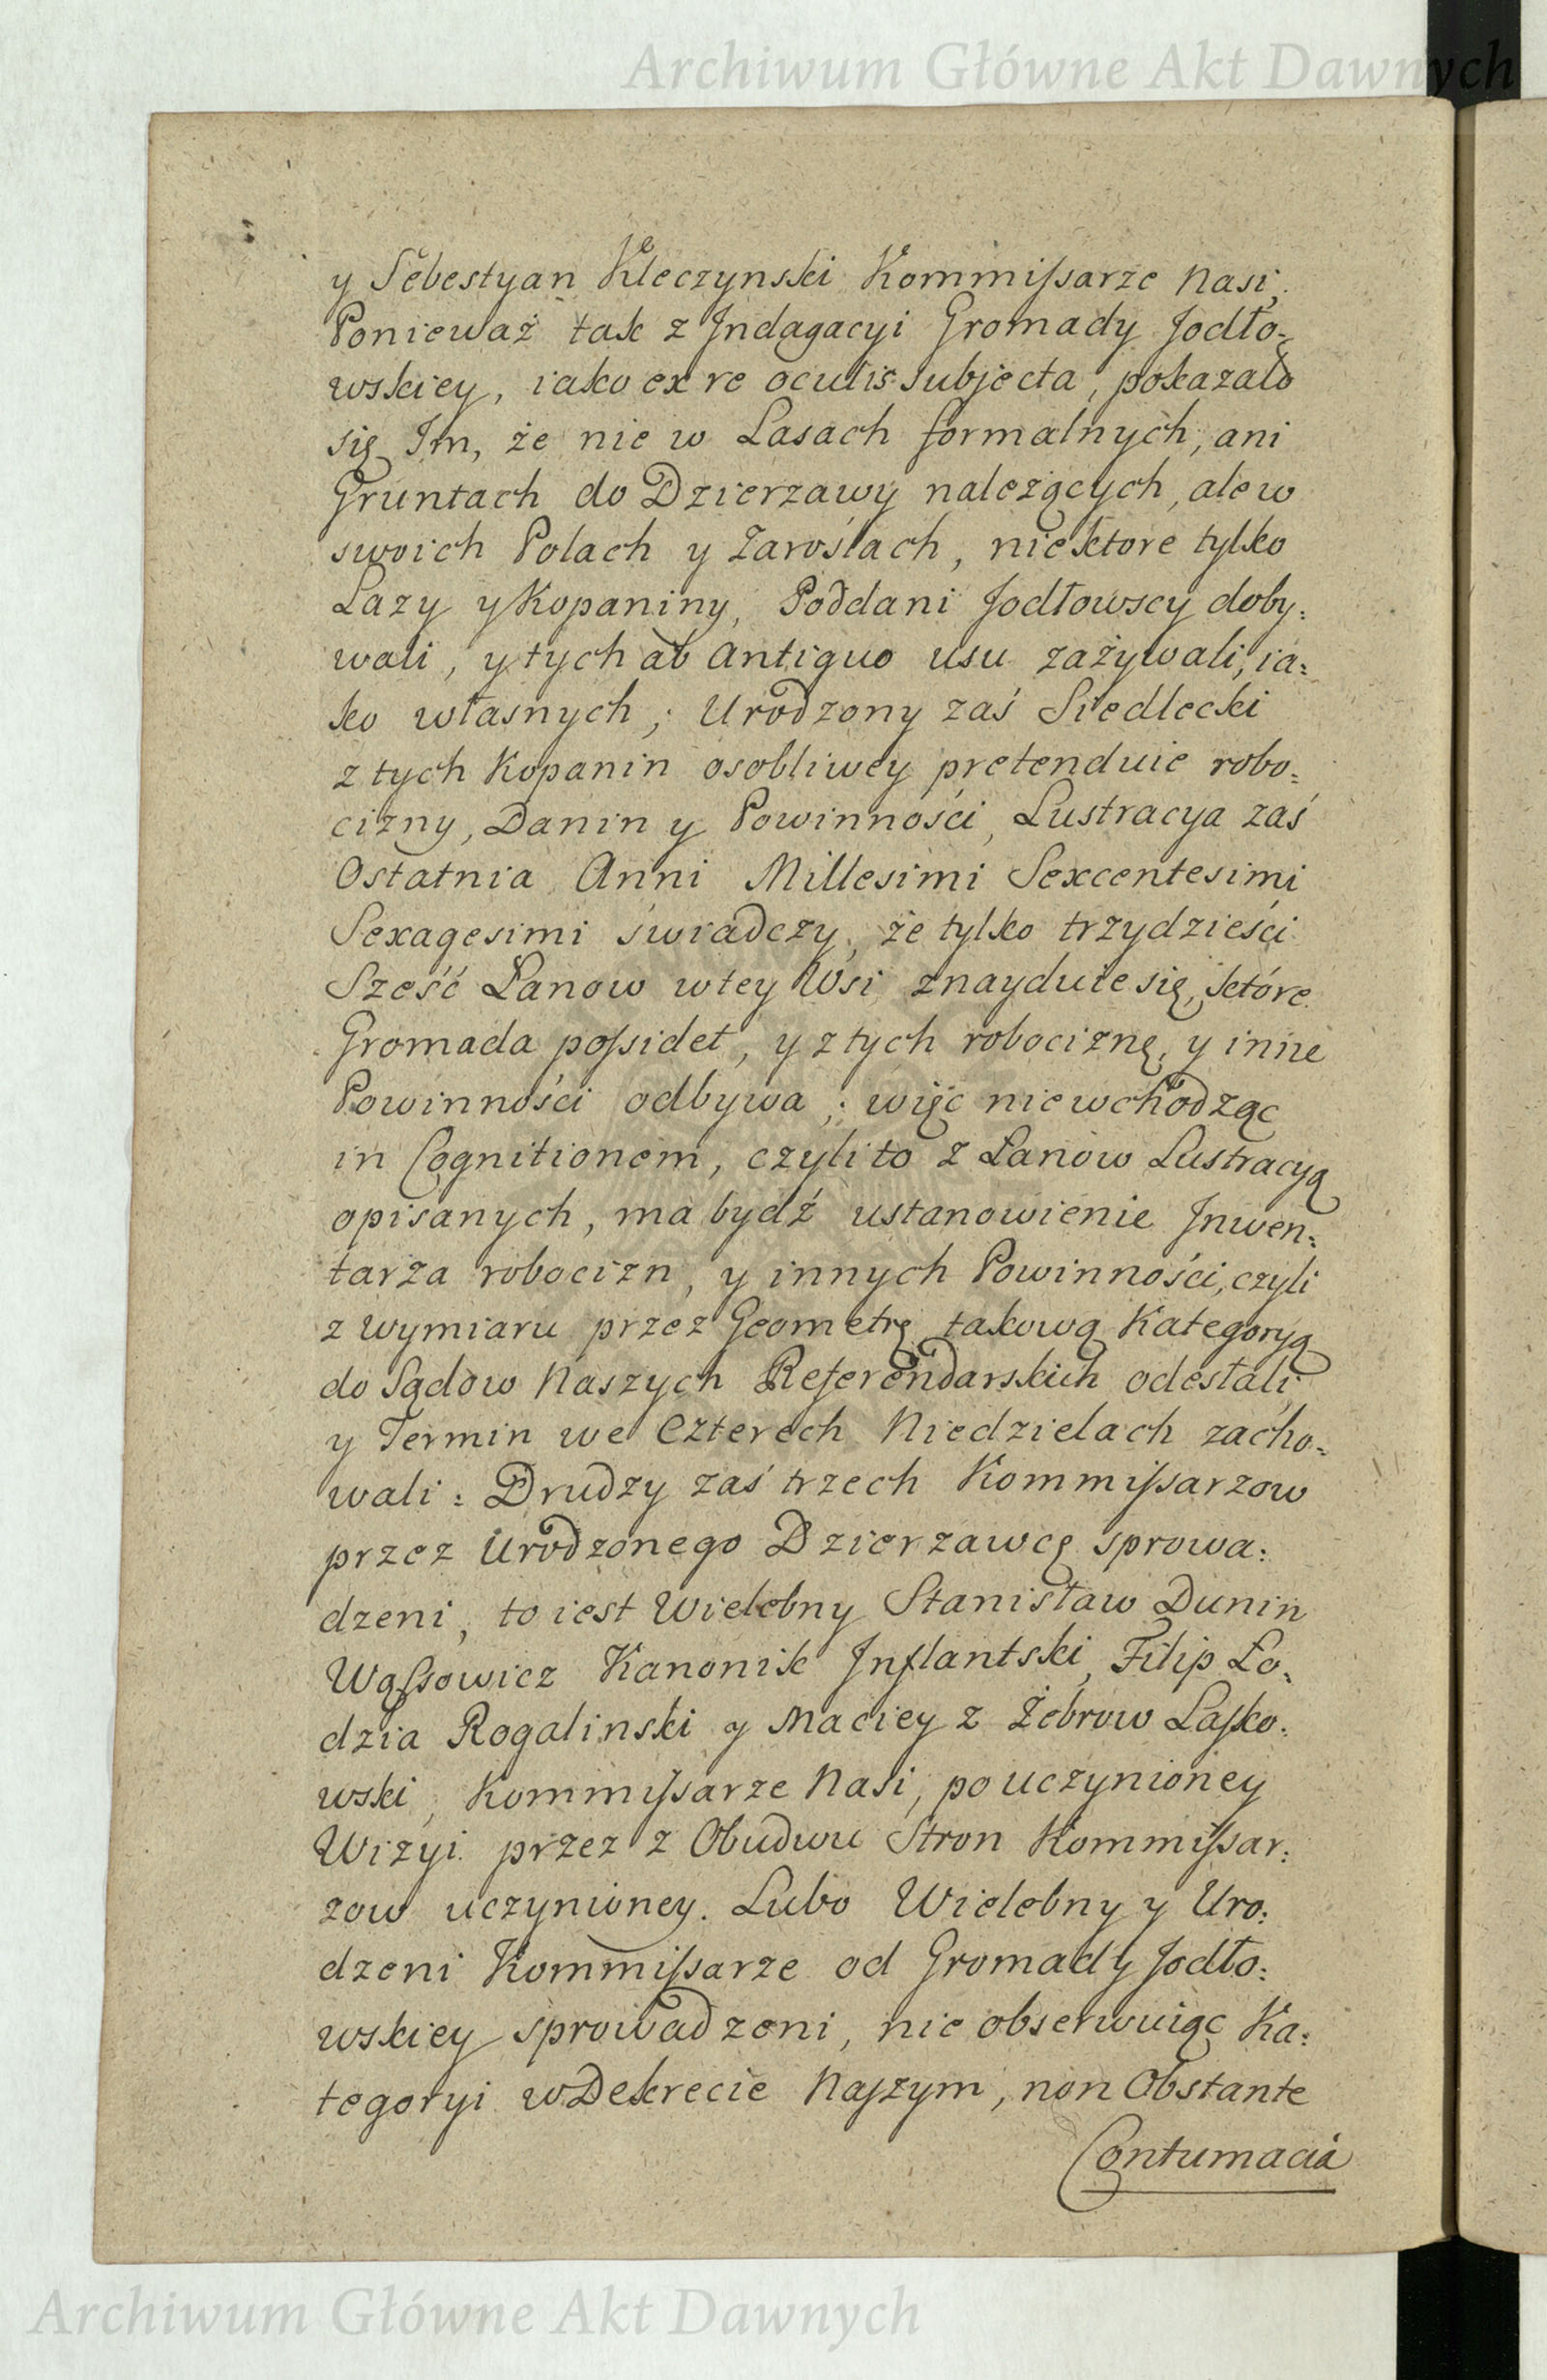 Archiwum Główne Akt Dawnych
y Sebestyan Kleczynski Kommissarze Nasi,
Ponieważ tak z Indagacyi Gromady Jodło-
wskiey, iako ex re oculis subjecta, pokazało
się Im, że nie w Lasach formalnych, ani
Gruntach do Dzierzawy należących, ale w
swoich Polach y Zaroślach, niektore tylko
Łazy y Kopaniny, Poddani Jodłowscy doby:
wali, y tych ab antiquo usu zażywali, ia:
ko własnych; Urodzony zaś Siedlecki
z tych Kopanin osobliwey pretenduie robo:
cizny, Danin y Powinności, Lustracya zaś
Ostatnia Anni Millesimi Sexcentesimi
Sexagesimi świadczy, że tylko trzydzieści
Sześć Łanow w tey Wsi znayduie się, które
Gromada possidet, y z tych robociznę, y inne
Powinności odbywa; więc nie wchodząc
in Cognitionem, czyli to z Łanow Lustracyą
opisanych, ma bydź ustanowienie Inwen:
tarza robocizn, y innych Powinności, czyli
z wymiaru przez Geometrę takową Kategoryą
do Sądow Naszych Referendarskich odesłali
y Termin we Czterech Niedzielach zacho:
wali: Drudzy zaś trzech Kommissarzow
przez Urodzonego Dzierzawcę sprowa:
dzeni, to iest Wielebny Stanisław Dunin
Wąssowicz Kanonik Inflantski, Filip Ło:
dzia Rogalinski y Maciey z Żebrow Lasko:
wski, Kommissarze Nasi, po uczynioney
Wizyi przez z Obudwu Stron Kommissar:
zow uczynioney. Lubo Wielebny y Uro:
dzeni Kommissarze od Gromady Jodło:
wskiey sprowadzeni, nie obserwuiąc Ka:
tegoryi w Dekrecie Naszym, non Obstante
Contumacia
Archiwum Główne Akt Dawnych